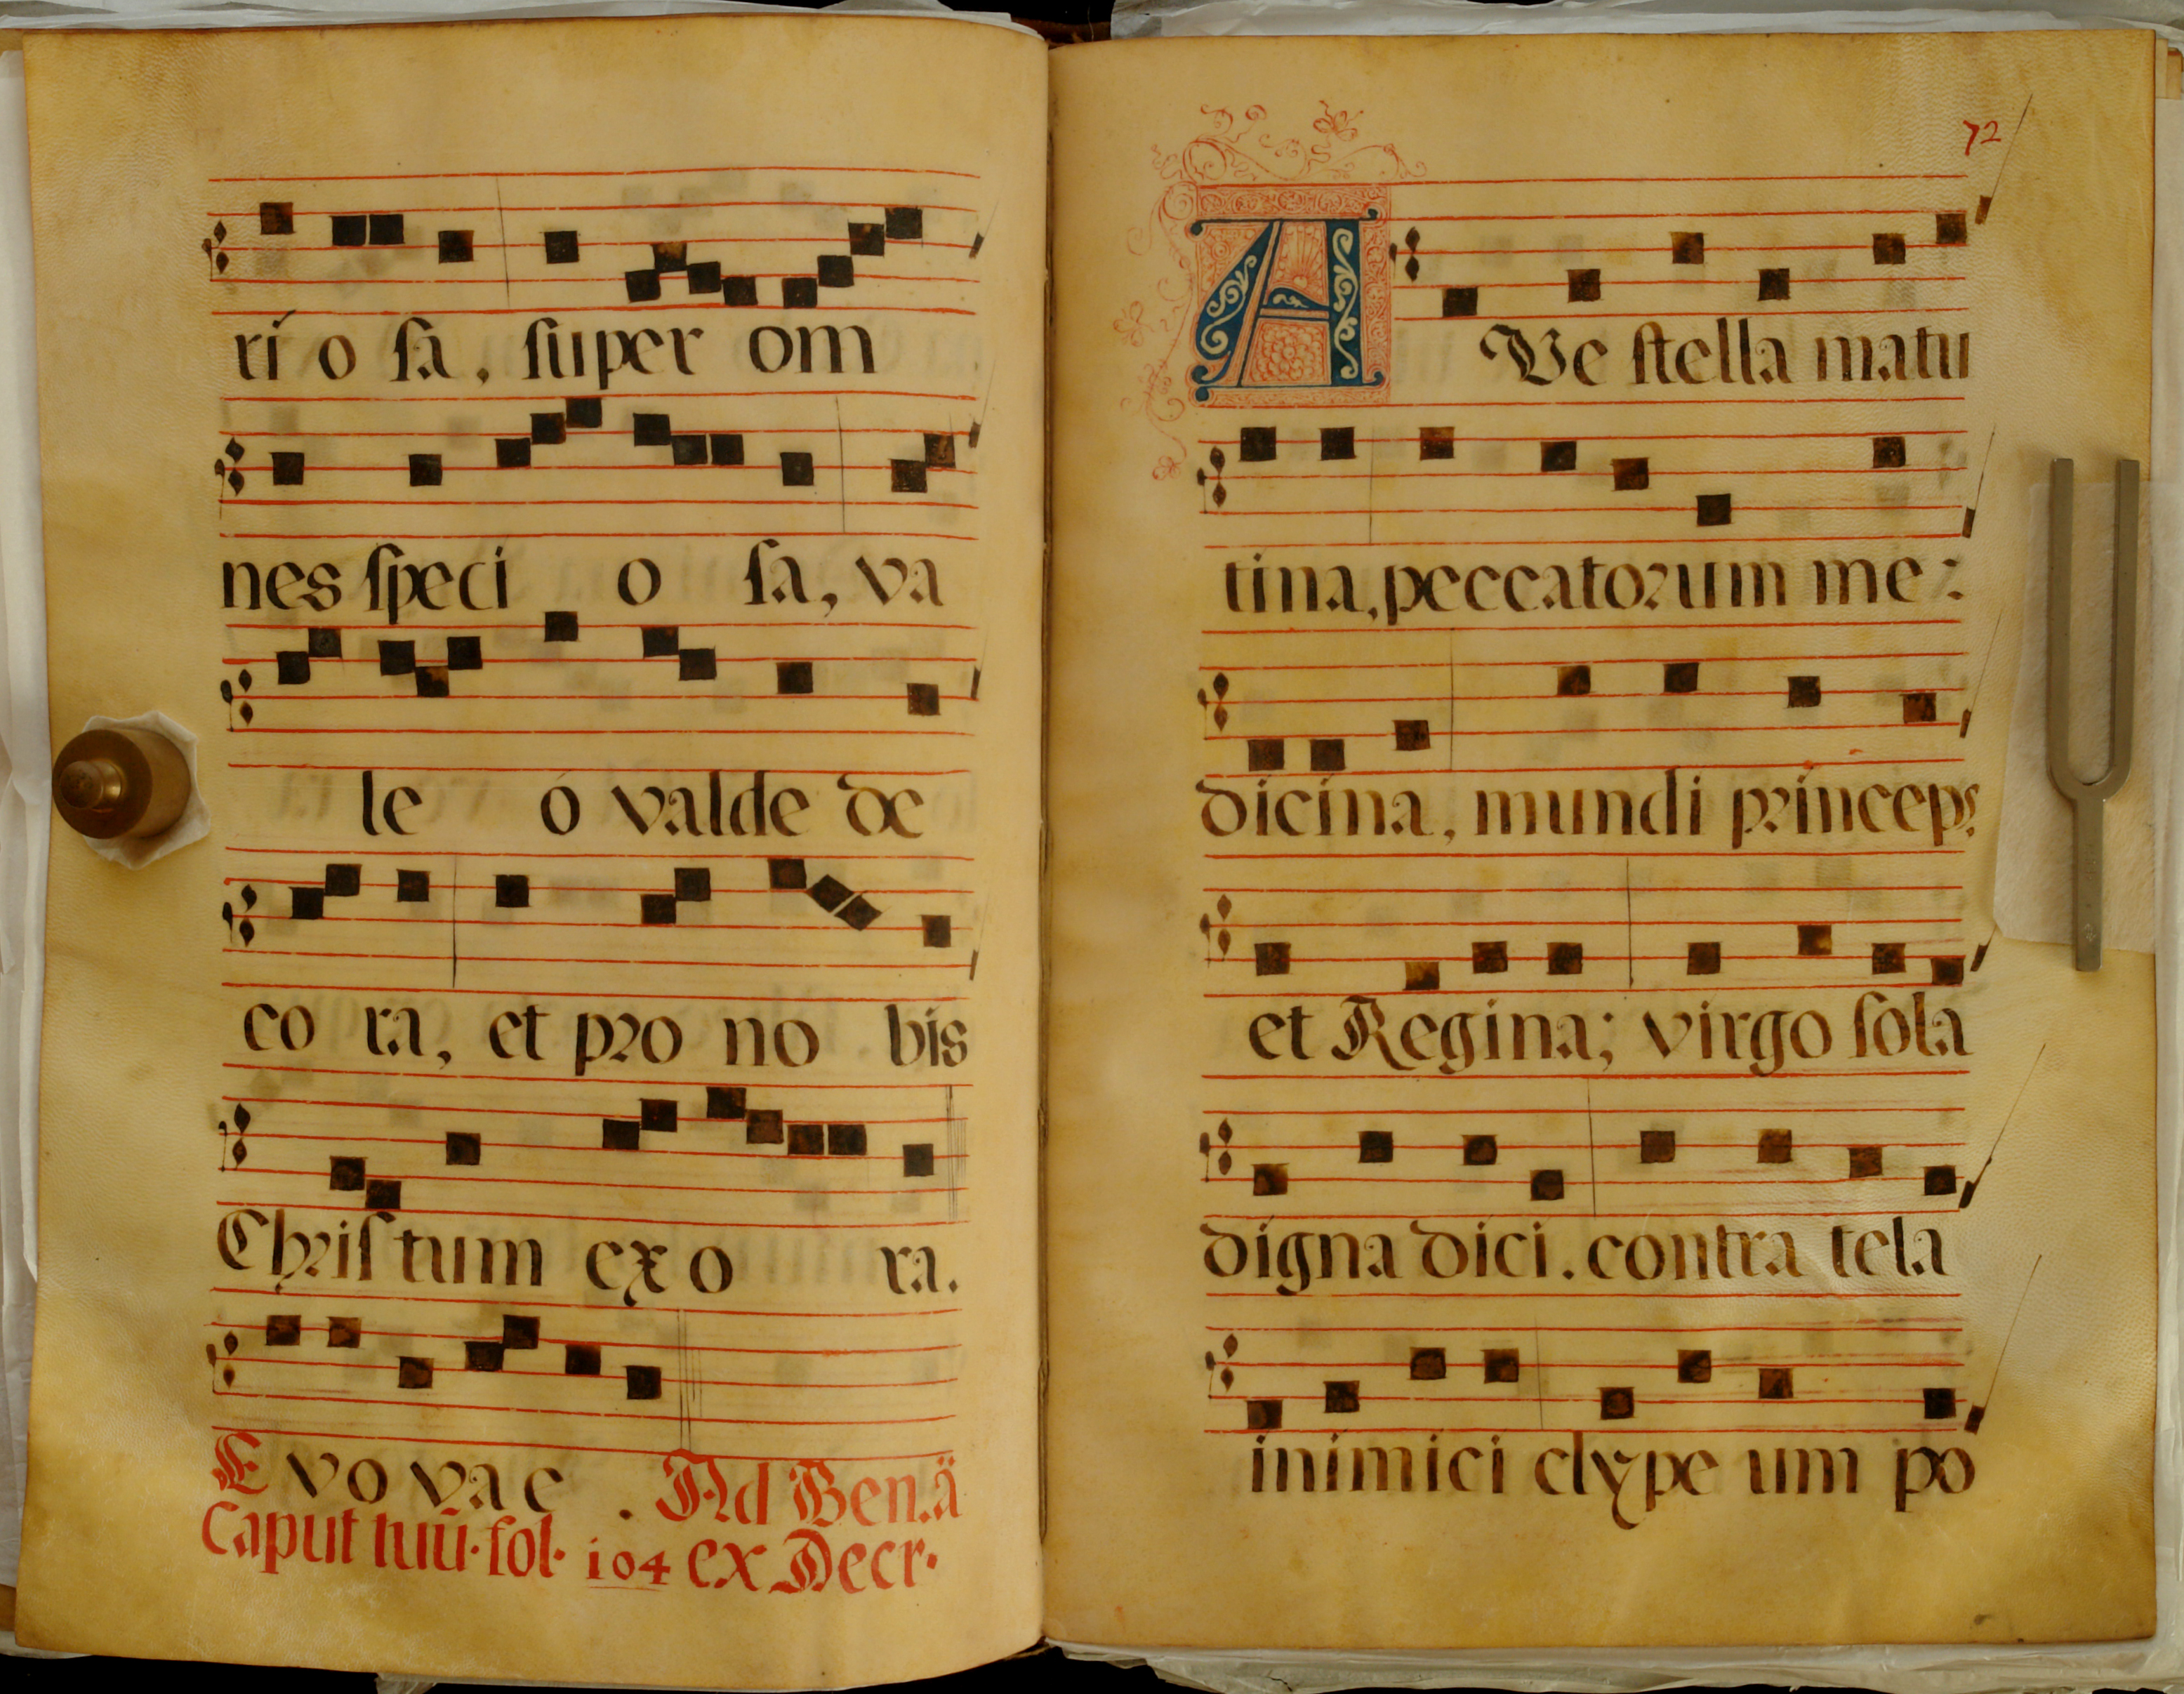 rí o sa, super om
nes speci o sa, va
le ó valde de
co ra, et pro no bis
Christum exo ra.
E vo vae . Ad Ben. ä
Caput tuū. fol. 104 ex Decr.
72
AVe stella matu
tina, peccatorum me:
dicína, mundi prínceps
et Regina; virgo sola
dígna dici. contra tela
inímici clype um po